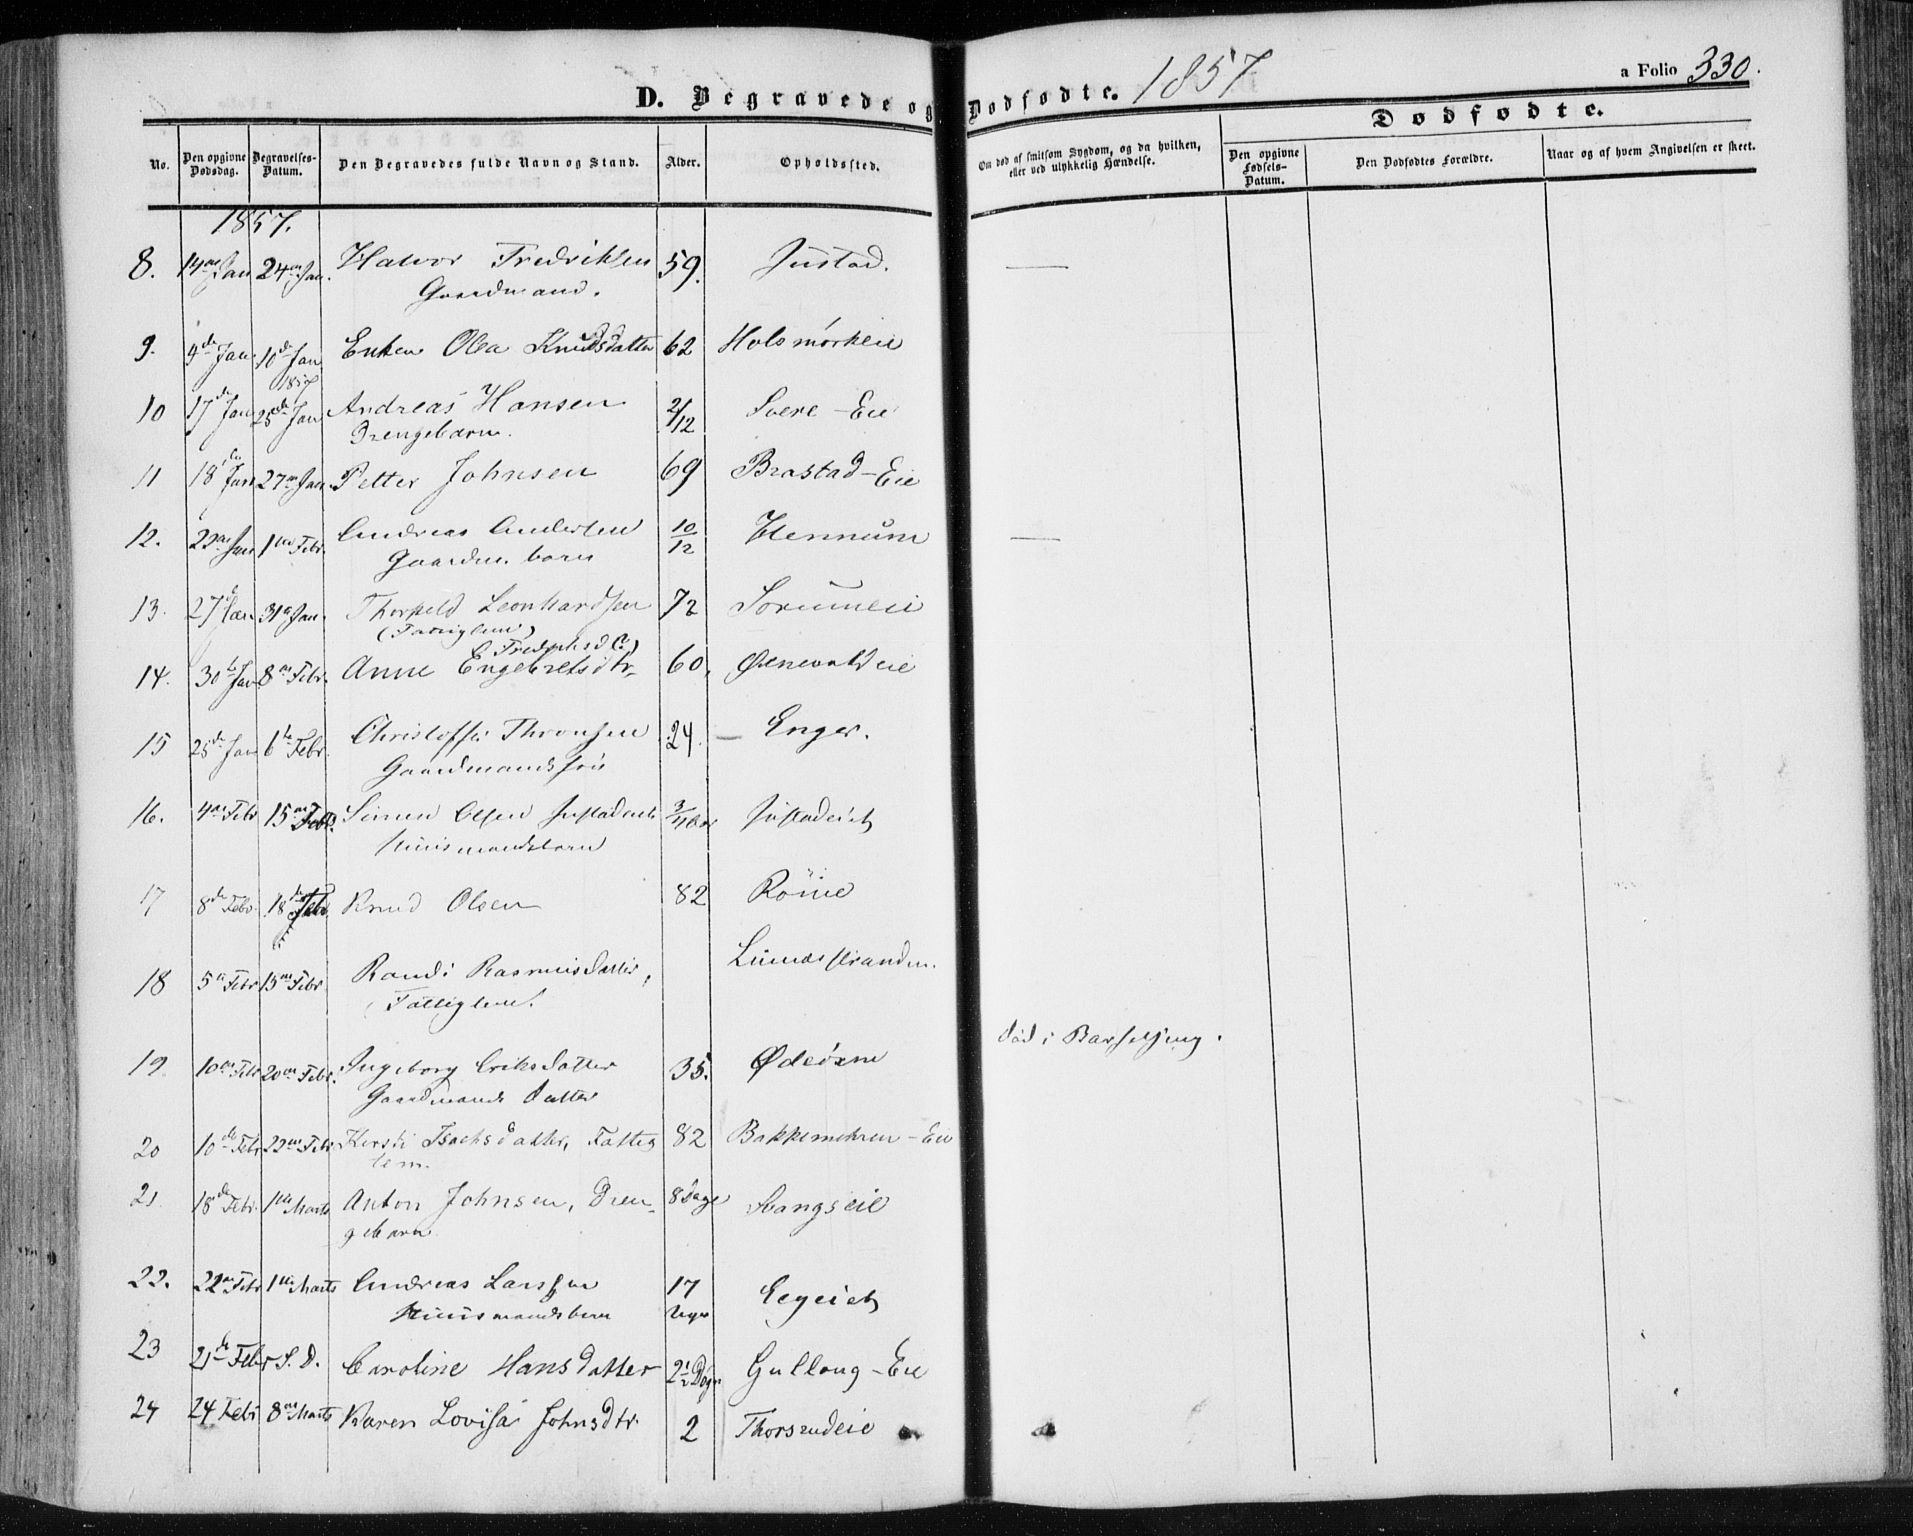 D. Begravede og Dødfødte. 1857
a Folio 330.
Dødfødte.
No.
Den opgivne Dødsdag.
Begravelses-Datum.
Den Begravedes fulde Navn og Stand.
Alder.
Opholdssted.
Om død af smitsom Sygdom, og da hvilken, eller ved ulykkelig Hændelse.
Den opgivne Fødsels-Datum.
Den Dødfødtes Forældre.
Naar og af hvem Angivelsen er skeet.
1857.
8. 14de Jan 24de Jan. Halvor Fredriksen 59. Justad. —
Gaardmand.
9. 9de Jan. 10de Jan Enken Olea Knudsdatter 62 Holsmørkeie
1857
10 17de Jan 25de Jan Andreas Hansen 2/12 Svere - Eie
Drengebarn.
11 18de Jan 27de Jan. Petter Johnsen 69 Brastad-Eie
12. Jan 1ste Febr. Andreas Andersen 10/12 Hennum —
Gaardm. barn
13. 27de Jan 31te Jan. Thorkeld Leonhardsen 72 Sorumeie
(Fattiglem)
14. 30te Jan 8de Febr. Anne Engebretsdtr. 60.
15 25de Jan 6te Febr. Christoffer Thronsen 24. — Enger.
Gaardmandssøn
16. 4de Febr 15de Febr. Simen Olsen 3/4 Aar Justadeiet
Huusmandsbarn
17 8de Febr. 18de Febr Knud Olsen 82
18 5te Febr 15de Febr. Randi Rasmusdatter,
(Fattiglem.
19 10de Febr 20de Febr. Ingeborg Eriksdatter 35. død i Barselseng.
Gaardmands datter
20 10de Febr 22de Febr Kersti Isachsdatter, Fattig 82 - Eie
lem.
21 18de Febr. 1ste Marts Anton Johnsen, Dren- 8 Dage Stangseie
gebarn
22. 22de Febr 1ste Marts Andreas Larssen 17
Huusmandsbarn Uger
23 21de Febr S. D. Caroline Hansdatter 2½ Døgn Gullaug - Eie
24 24 Febr 8de Marts Karen Lovisa Johnsdtr. 2 Thorsrudeie